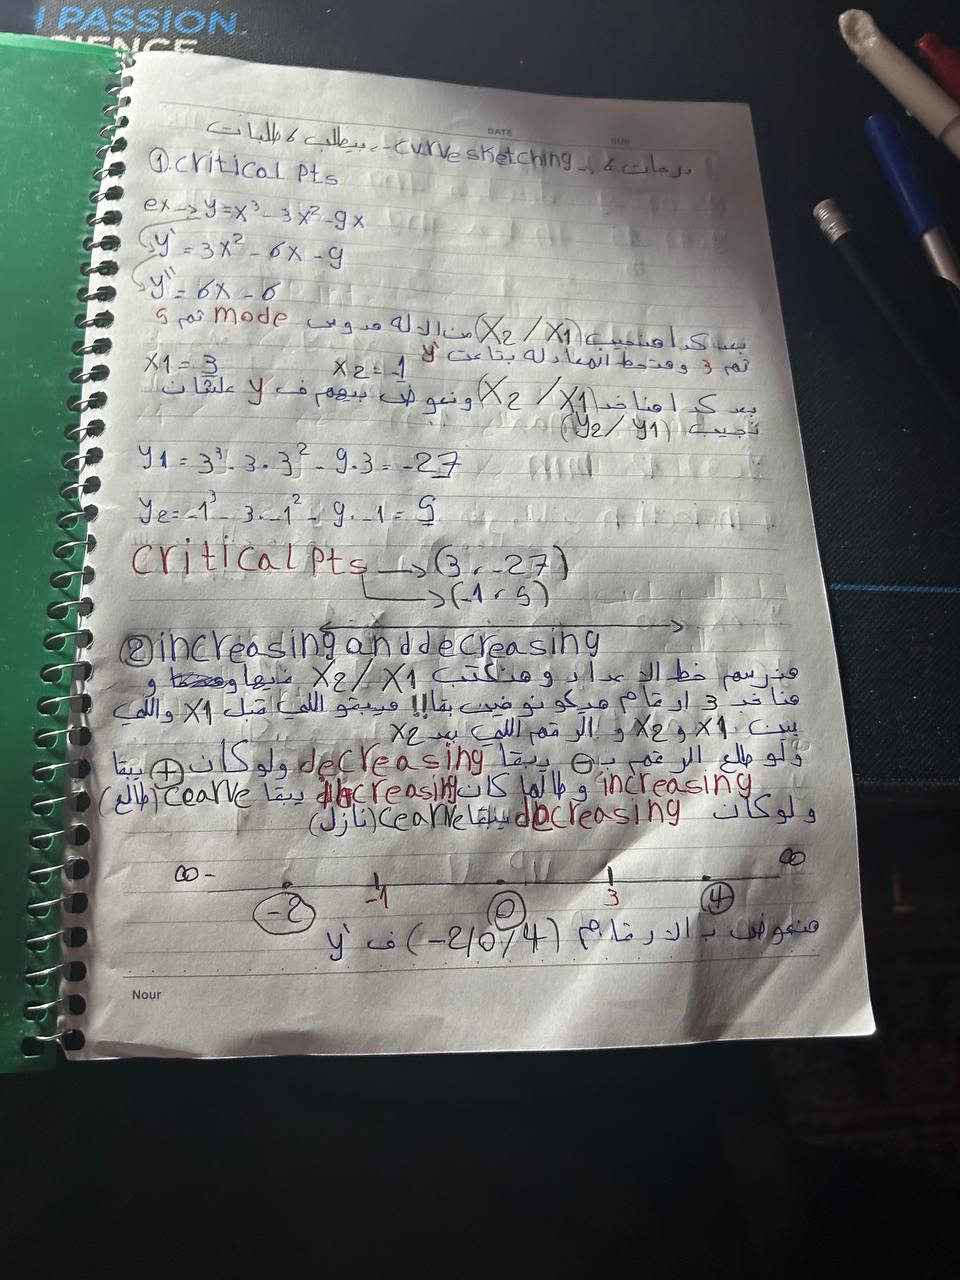 PASSION.
SCIENCE
DATE
SUB
curve sketching → 6 درجات - بيطلب 6 طلبات
① critical pts
ex → y = x³ - 3x² - 9x
y' = 3x² - 6x - 9
y'' = 6x - 6
بعد كدا هنجيب (X2 / X1) من الاله هدوس mode ثم 5
ثم 3 وهتحط المعادله بتاعت y'
X1 = 3 X2 = -1
بعد كدا هناخد (X2 / X1) ونعوض بيهم ف y علشان
نجيب (y2 / y1)
y1 = 3³ - 3 · 3² - 9 · 3 = -27
y2 = -1³ - 3 · -1² - 9 · -1 = 5
critical pts → (3 , -27)
→ (-1 , 5)
② increasing and decreasing
هنرسم خط الاعداد و هنكتب X2 / X1 فيها و
هناخد 3 ارقام هيكونو فين بقا!! هيبقو اللي قبل X1 واللي
بين X1 و X2 و الرقم اللي بعد X2
ولو طلع الرقم ب ⊖ يبقا decreasing ولو كان ⊕ يبقا
increasing و طالما كان increasing يبقا cearve (طالع)
ولو كان decreasing يبقا cearve (نازل)
∞- ∞
-2 -1 0 3 4
هنعوض ب الارقام (-2/0/4) ف y'
Nour